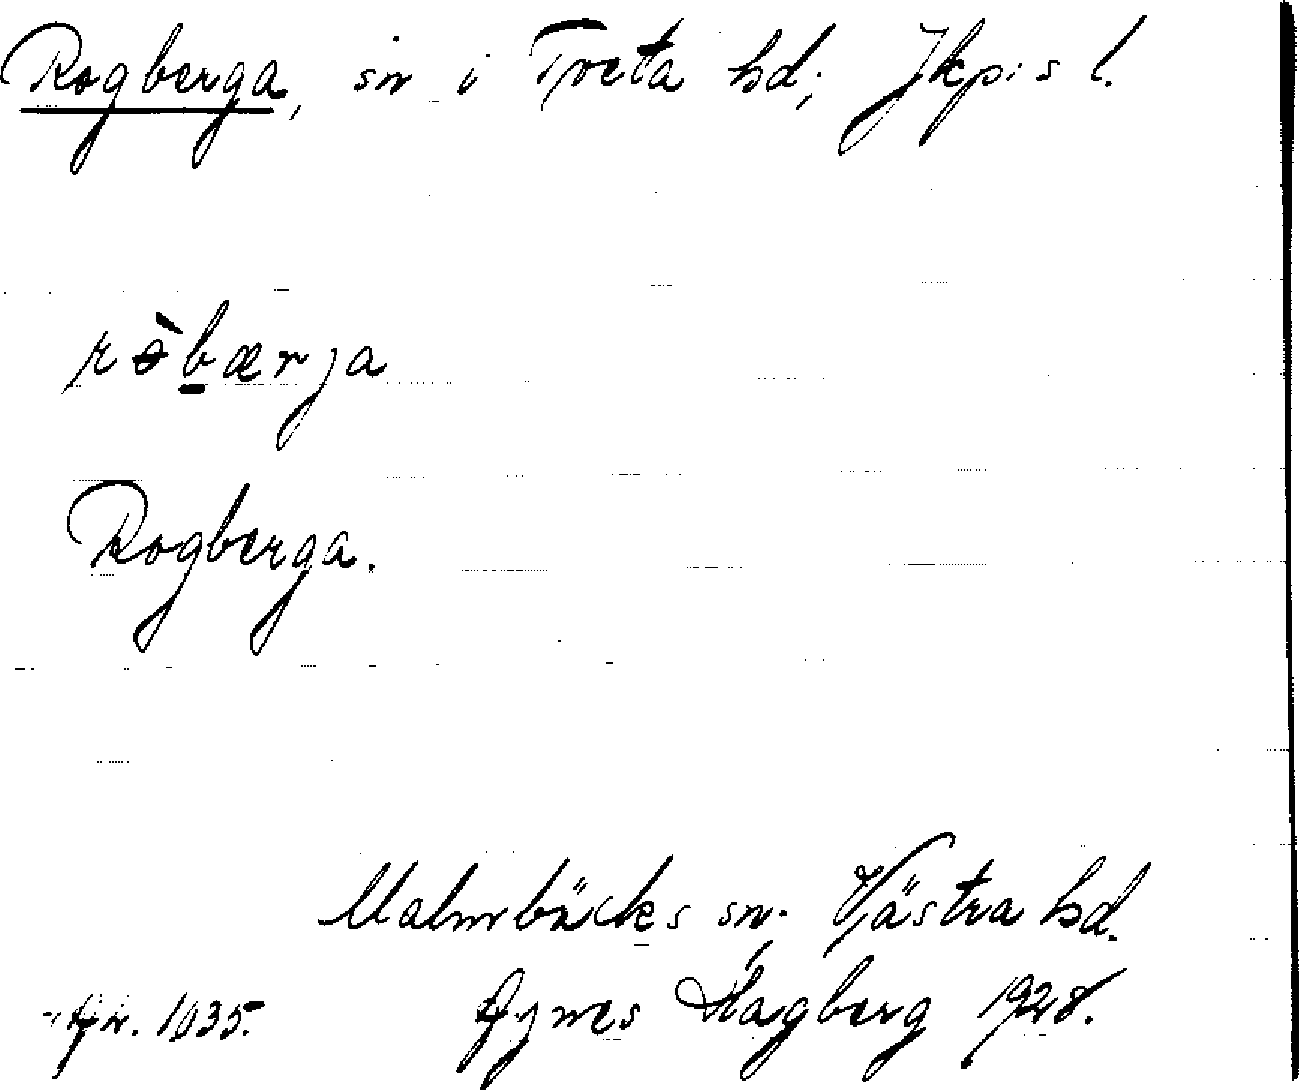 Rogberga, sn i Tveta hd; Jkp:s l.
rɵ̀bærja
Rogberga.
Malmbäcks sn. Västra hd.
Agnes Hagberg 1928.
1035.